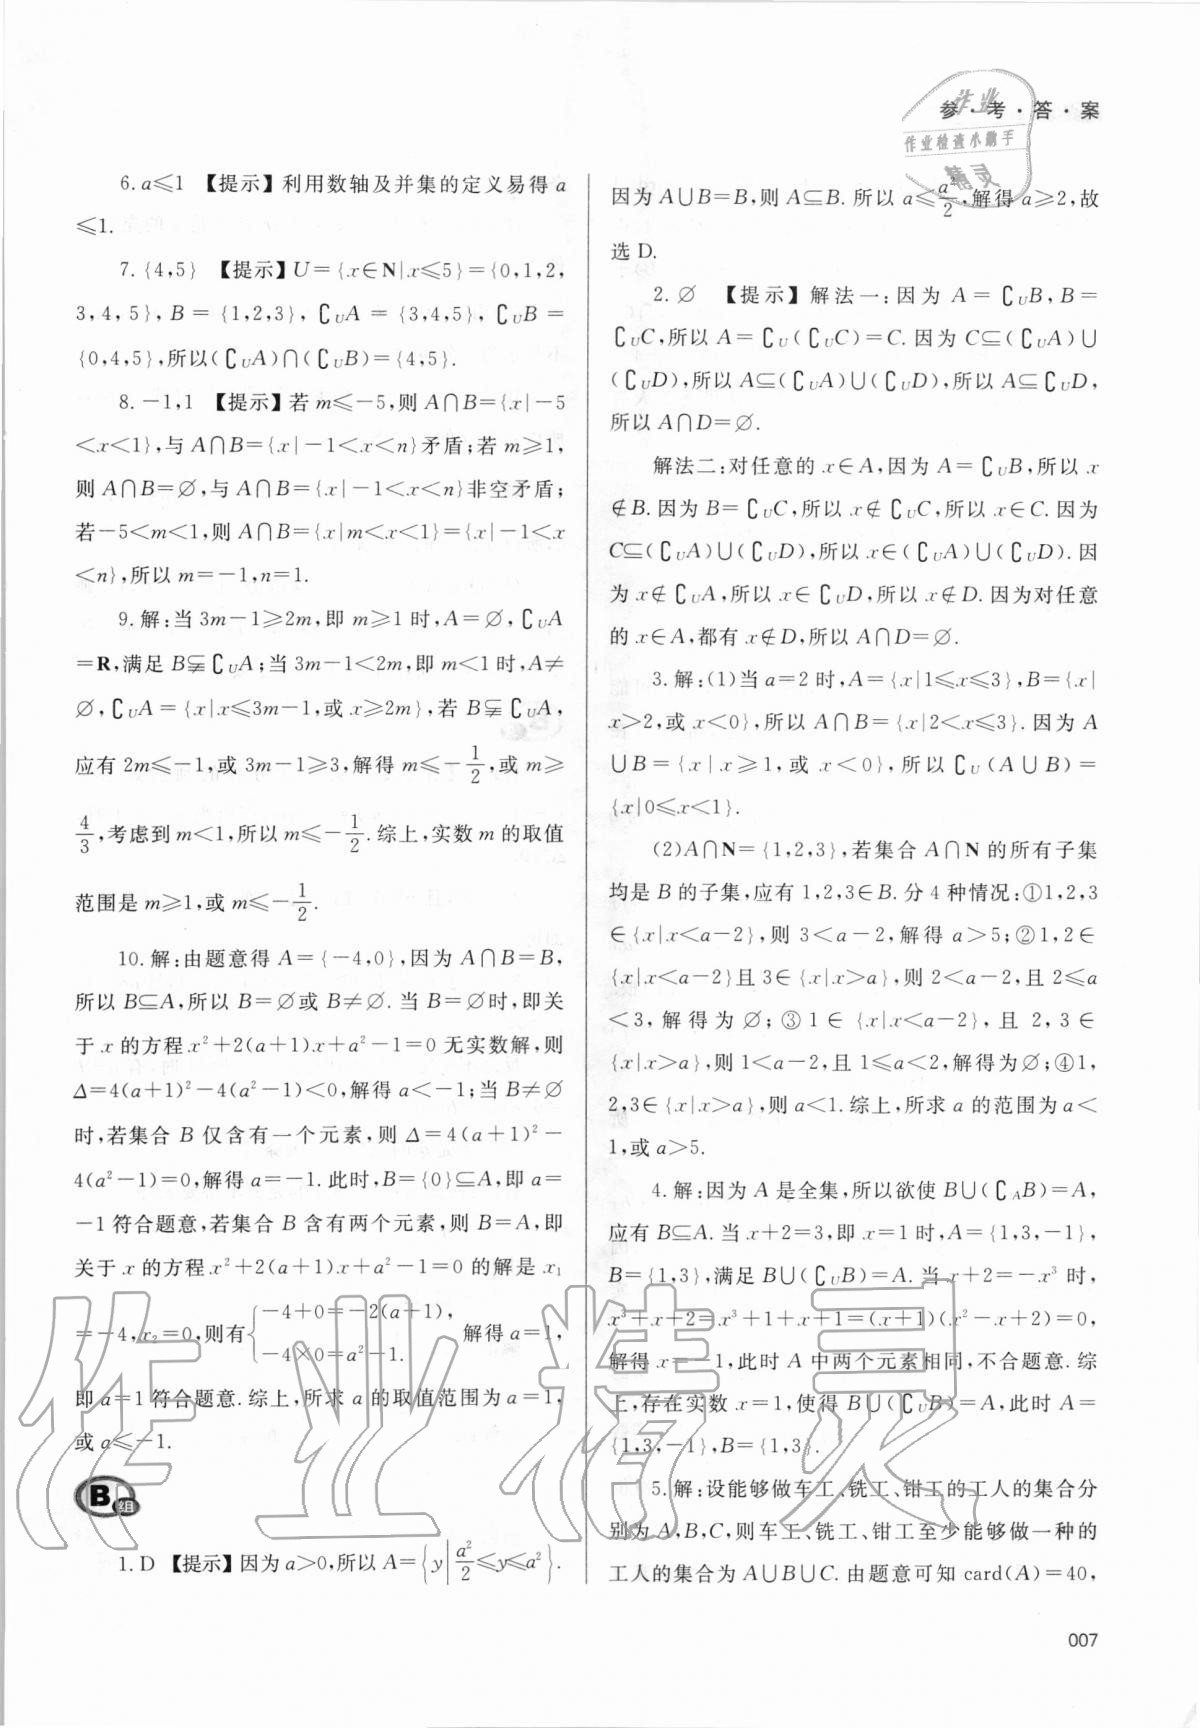 参·考·答·案
作业
作业检查小助手
精灵
6. a≤1 【提示】利用数轴及并集的定义易得 a
≤1.
7. {4,5} 【提示】U={x∈N|x≤5}={0,1,2,
3,4,5},B={1,2,3},∁UA={3,4,5},∁UB=
{0,4,5},所以(∁UA)∩(∁UB)={4,5}.
8. -1,1 【提示】若 m≤-5,则 A∩B={x|-5
<x<1},与 A∩B={x|-1<x<n}矛盾;若 m≥1,
则 A∩B=∅,与 A∩B={x|-1<x<n}非空矛盾;
若-5<m<1,则 A∩B={x|m<x<1}={x|-1<x
<n},所以 m=-1,n=1.
9. 解:当 3m-1≥2m,即 m≥1 时,A=∅,∁UA
=R,满足 B⫋∁UA;当 3m-1<2m,即 m<1 时,A≠
∅,∁UA={x|x≤3m-1,或 x≥2m},若 B⫋∁UA,
应有 2m≤-1,或 3m-1≥3,解得 m≤-1/2,或 m≥
4/3,考虑到 m<1,所以 m≤-1/2.综上,实数 m 的取值
范围是 m≥1,或 m≤-1/2.
10. 解:由题意得 A={-4,0},因为 A∩B=B,
所以 B⊆A,所以 B=∅或 B≠∅.当 B=∅时,即关
于 x 的方程 x²+2(a+1)x+a²-1=0 无实数解,则
Δ=4(a+1)²-4(a²-1)<0,解得 a<-1;当 B≠∅
时,若集合 B 仅含有一个元素,则 Δ=4(a+1)²-
4(a²-1)=0,解得 a=-1.此时,B={0}⊆A,即 a=
-1 符合题意,若集合 B 含有两个元素,则 B=A,即
关于 x 的方程 x²+2(a+1)x+a²-1=0 的解是 x₁
=-4,x₂=0,则有{-4+0=-2(a+1), -4×0=a²-1. 解得 a=1,
即 a=1 符合题意.综上,所求 a 的取值范围为 a=1,
或 a≤-1.
B组
1. D 【提示】因为 a>0,所以 A={y|a²/2≤y≤a²}.
因为 A∪B=B,则 A⊆B.所以 a≤a²/2,解得 a≥2,故
选 D.
2. ∅ 【提示】解法一:因为 A=∁UB,B=
∁UC,所以 A=∁U(∁UC)=C.因为 C⊆(∁UA)∪
(∁UD),所以 A⊆(∁UA)∪(∁UD),所以 A⊆∁UD,
所以 A∩D=∅.
解法二:对任意的 x∈A,因为 A=∁UB,所以 x
∉B.因为 B=∁UC,所以 x∉∁UC,所以 x∈C.因为
C⊆(∁UA)∪(∁UD),所以 x∈(∁UA)∪(∁UD).因
为 x∉∁UA,所以 x∈∁UD,所以 x∉D.因为对任意
的 x∈A,都有 x∉D,所以 A∩D=∅.
3. 解:(1)当 a=2 时,A={x|1≤x≤3},B={x|
x>2,或 x<0},所以 A∩B={x|2<x≤3}.因为 A
∪B={x|x≥1,或 x<0},所以∁U(A∪B)=
{x|0≤x<1}.
(2)A∩N={1,2,3},若集合 A∩N 的所有子集
均是 B 的子集,应有 1,2,3∈B.分 4 种情况:①1,2,3
∈{x|x<a-2},则 3<a-2,解得 a>5;②1,2∈
{x|x<a-2}且 3∈{x|x>a},则 2<a-2,且 2≤a
<3,解得为∅;③1∈{x|x<a-2},且 2,3∈
{x|x>a},则 1<a-2,且 1≤a<2,解得为∅;④1,
2,3∈{x|x>a},则 a<1.综上,所求 a 的范围为 a<
1,或 a>5.
4. 解:因为 A 是全集,所以欲使 B∪(∁AB)=A,
应有 B⊆A.当 x+2=3,即 x=1 时,A={1,3,-1},
B={1,3},满足 B∪(∁UB)=A.当 x+2=-x³ 时,
x³+x+2=x³+1+x+1=(x+1)(x²-x+2)=0,
解得 x=-1,此时 A 中两个元素相同,不合题意.综
上,存在实数 x=1,使得 B∪(∁UB)=A,此时 A=
{1,3,-1},B={1,3}.
5. 解:设能够做车工、铣工、钳工的工人的集合分
别为 A,B,C,则车工、铣工、钳工至少能够做一种的
工人的集合为 A∪B∪C.由题意可知 card(A)=40,
作业精灵
007